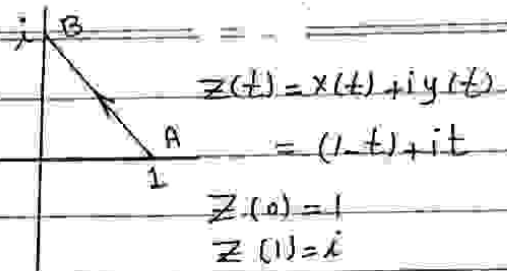 i B
z(t) = x(t) + i y(t)
= (1-t) + it
A
1
Z(0) = 1
Z(1) = i